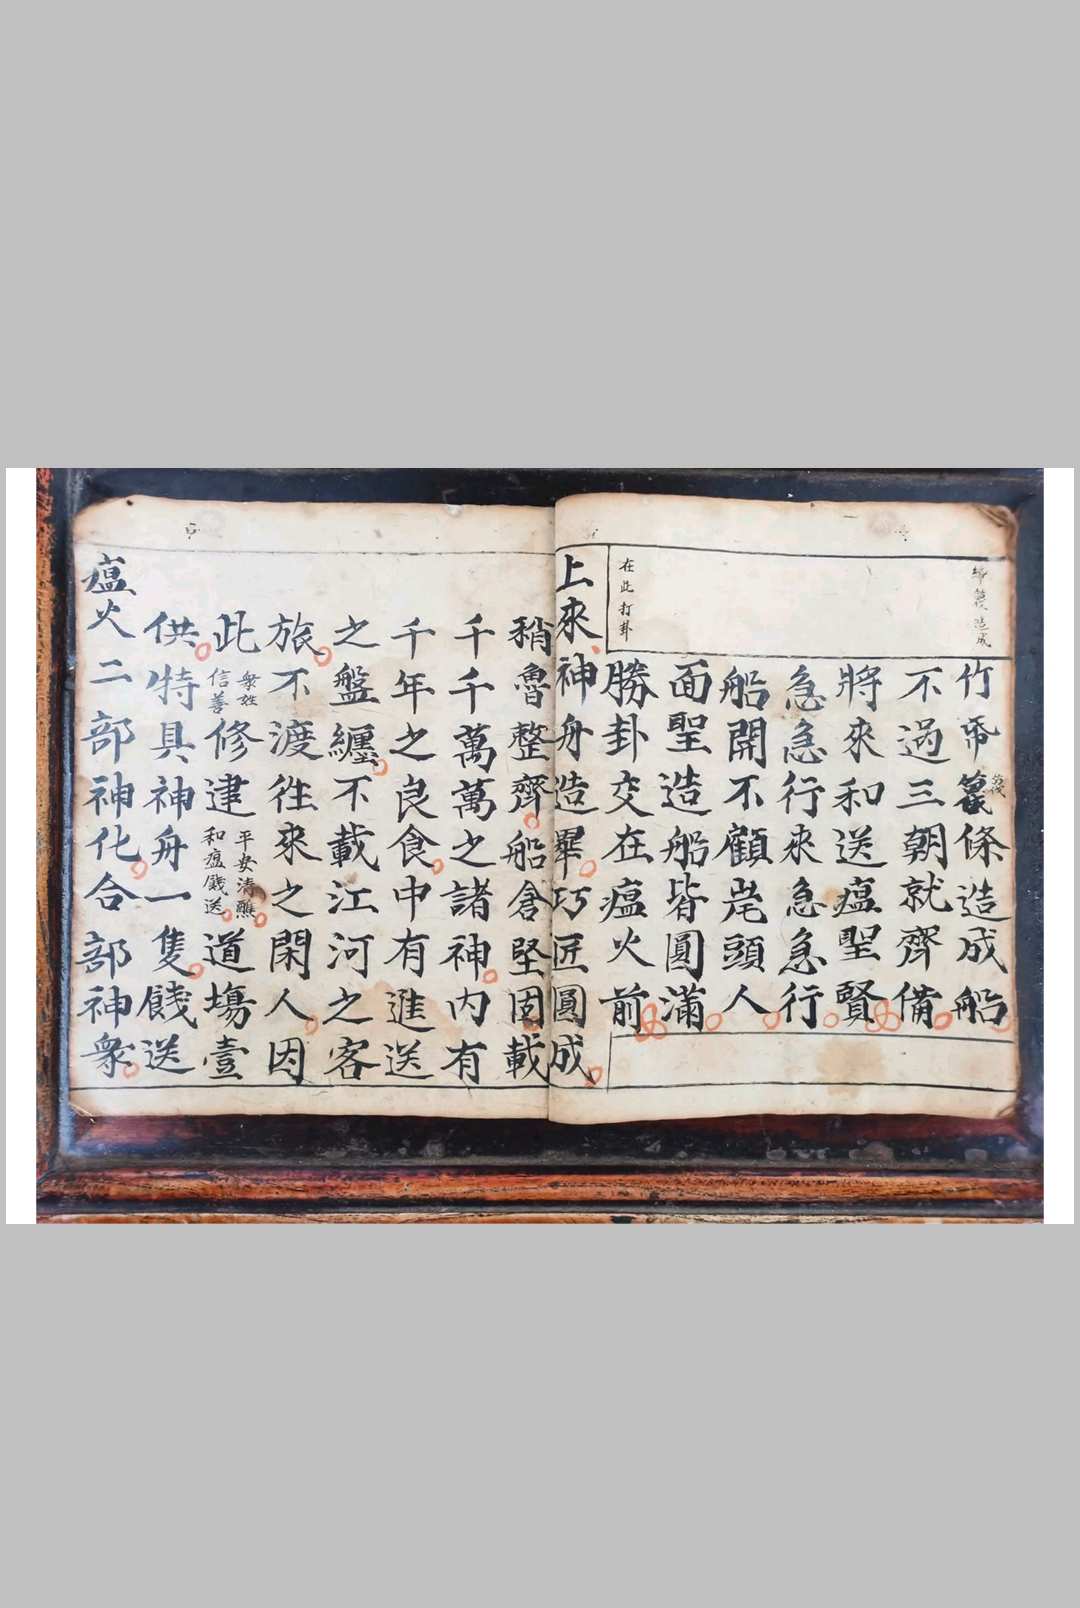 竹帚篾條造成船
不過三朝就齊備
將來和送瘟聖賢
急急行來急急行
船開不顧岸頭人
面聖造船皆圓滿
勝卦交在瘟火前
在此打卦
上來神舟造畢巧匠圓成
稍魯整齊船倉堅固載
千千萬萬之諸神內有
千年之良食中有進送
之盤纏不載江河之客
旅不渡往來之閑人因
此衆姓信善修建平安清醮和瘟餞送道塲壹
供特具神舟一隻餞送
瘟火二部神化合部神衆